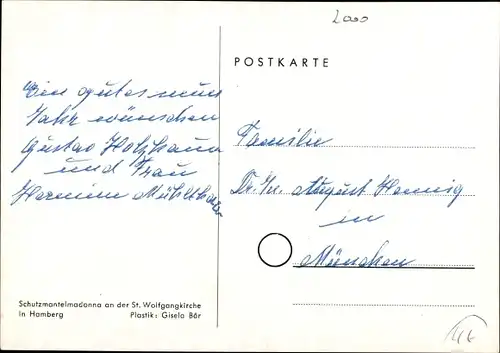 2000
POSTKARTE
Ein gutes neues
Jahr wünschen
Gustav Holzhauer
und Frau
Familie
Dr. August Hennig
in
München
Schutzmantelmadonna an der St. Wolfgangkirche
in Hamberg Plastik: Gisela Bär